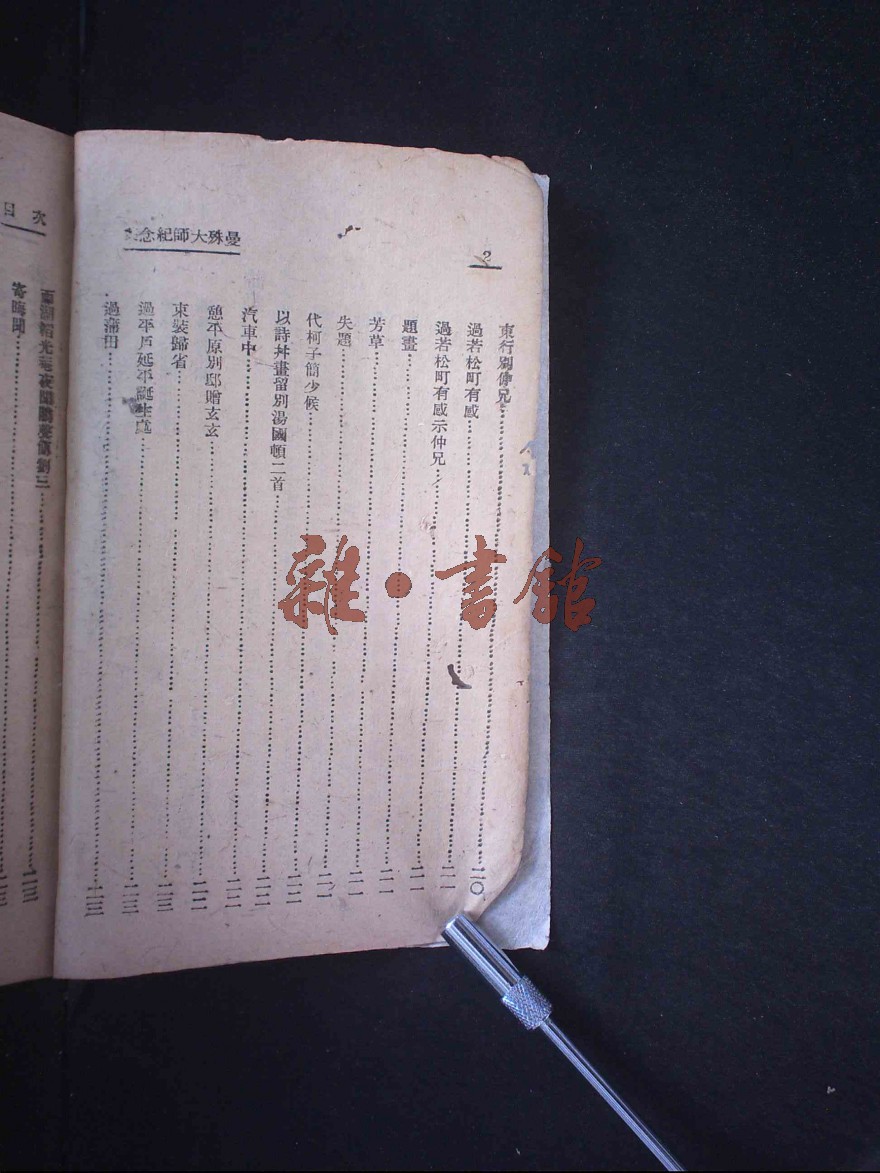 曼殊大師紀念
2
東行別仲兄……二〇
過若松町有感……二一
過若松町有感示仲兄……二一
題畫……二一
芳草……二一
失題……二一
代柯子簡少候……二一
以詩幷畫留別湯國頓二首……二二
汽車中……二二
憩平原別邸贈玄玄……二二
束裝歸省……二三
過平戶延平誕生處……二三
過蒲田……二三
目次
西湖韜光菴夜聞鵑聲簡劉三……二三
寄晦聞……
雜·書館